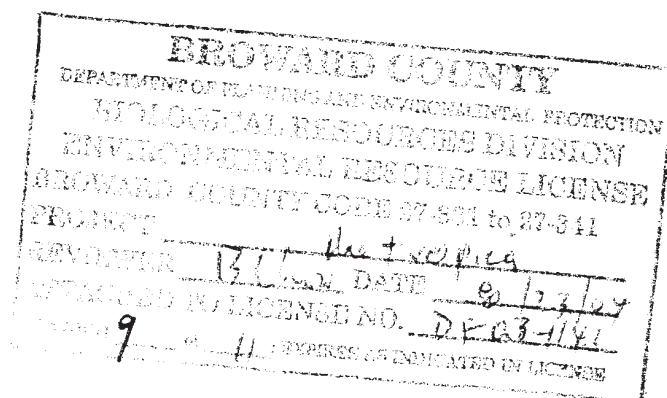 BROWARD COUNTY
DEPARTMENT OF PLANNING AND ENVIRONMENTAL PROTECTION
BIOLOGICAL RESOURCES DIVISION
ENVIRONMENTAL RESOURCE LICENSE
BROWARD COUNTY CODE 27-331 to 27-341
PROJECT
REVIEWER DATE 8/23/04
ATTACHED TO LICENSE NO. DF03-1141
9 of 11 EXPIRES AS INDICATED IN LICENSE